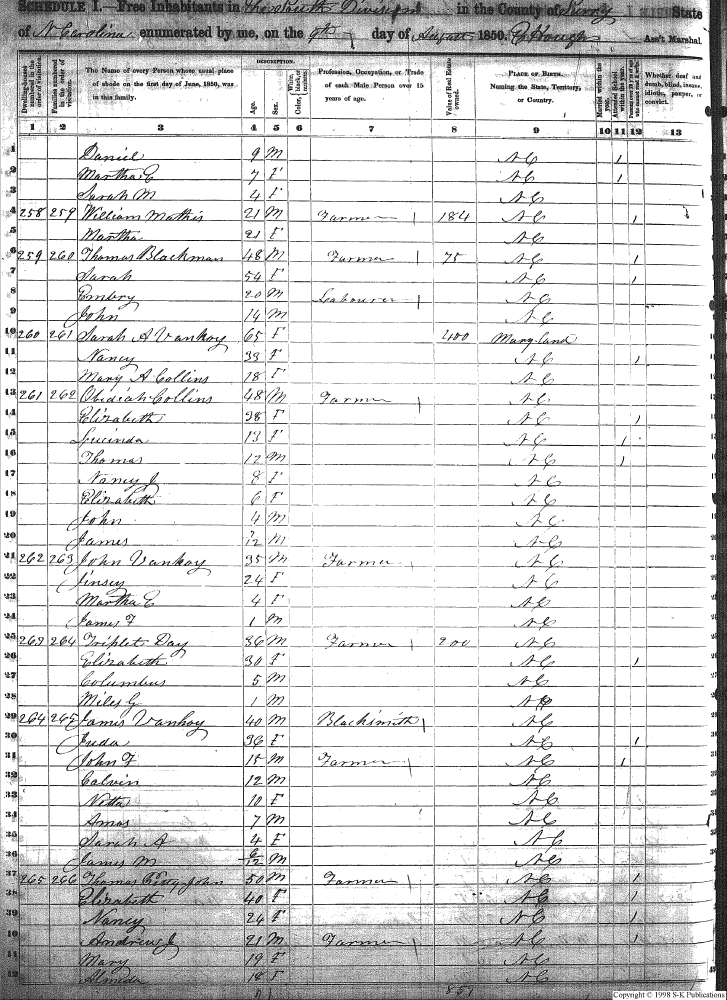 SCHEDULE I.—Free Inhabitants in the South Division in the County of Surry State
of N. Carolina enumerated by me, on the 9th day of August 1850. Ass't Marshal
DESCRIPTION.
Dwelling-houses numbered in the order of visitation.
Families numbered in the order of visitation.
The Name of every Person whose usual place of abode on the first day of June, 1850, was in this family.
Age.
Sex.
White, black, or mulatto.
Color,
Profession, Occupation, or Trade of each Male Person over 15 years of age.
Value of Real Estate owned.
PLACE OF BIRTH. Naming the State, Territory, or Country.
Married within the year.
Attended School within the year.
Whether deaf and dumb, blind, insane, idiotic, pauper, or convict.
1 2 3 4 5 6 7 8 9 10 11 12 13
1 Daniel 9 M NC 1
2 Martha E 7 F NC 1
3 Sarah M 4 F NC
4 258 259 William Mathis 21 M Farmer 184 NC 1
5 Martha 21 F NC
6 259 260 Thomas Blackman 48 M Farmer 75 NC 1
7 Sarah 54 F NC 1
8 Embry 20 M Labourer NC
9 John 14 M NC
10 260 261 Sarah A Vanhoy 65 F 400 Maryland
11 Nancy 33 F NC 1
12 Mary A Collins 18 F NC
13 261 262 Obidiah Collins 48 M Farmer NC
14 Elizabeth 38 F NC 1
15 Lucinda 13 F NC 1
16 Thomas 12 M NC 1
17 Nancy J 8 F NC
18 Elizabeth 6 F NC
19 John 4 M NC
20 James M NC
21 262 263 John Vanhoy 35 M Farmer NC
22 Jinsey 24 F NC
23 Martha E 4 F NC
24 James F 1 M NC
25 263 264 Triplet Day 36 M Farmer 200 NC
26 Elizabeth 30 F NC 1
27 Columbus 5 M NC
28 Miles G 1 M NC
29 264 265 James Vanhoy 40 M Blacksmith NC
30 Juda 36 F NC 1
31 John F 15 M Farmer NC 1
32 Calvin 12 M NC
33 10 F NC
34 Amos 7 M NC
35 Sarah A 4 F NC
36 James M M NC
37 265 266 Thomas John 50 M Farmer NC 1
38 Elizabeth 40 F NC 1
39 Nancy 24 F NC 1
40 Andrew J 21 M Farmer NC 1
41 Mary 19 F NC 1
42 Almeda 18 F NC
859
Copyright © 1998 S-K Publications